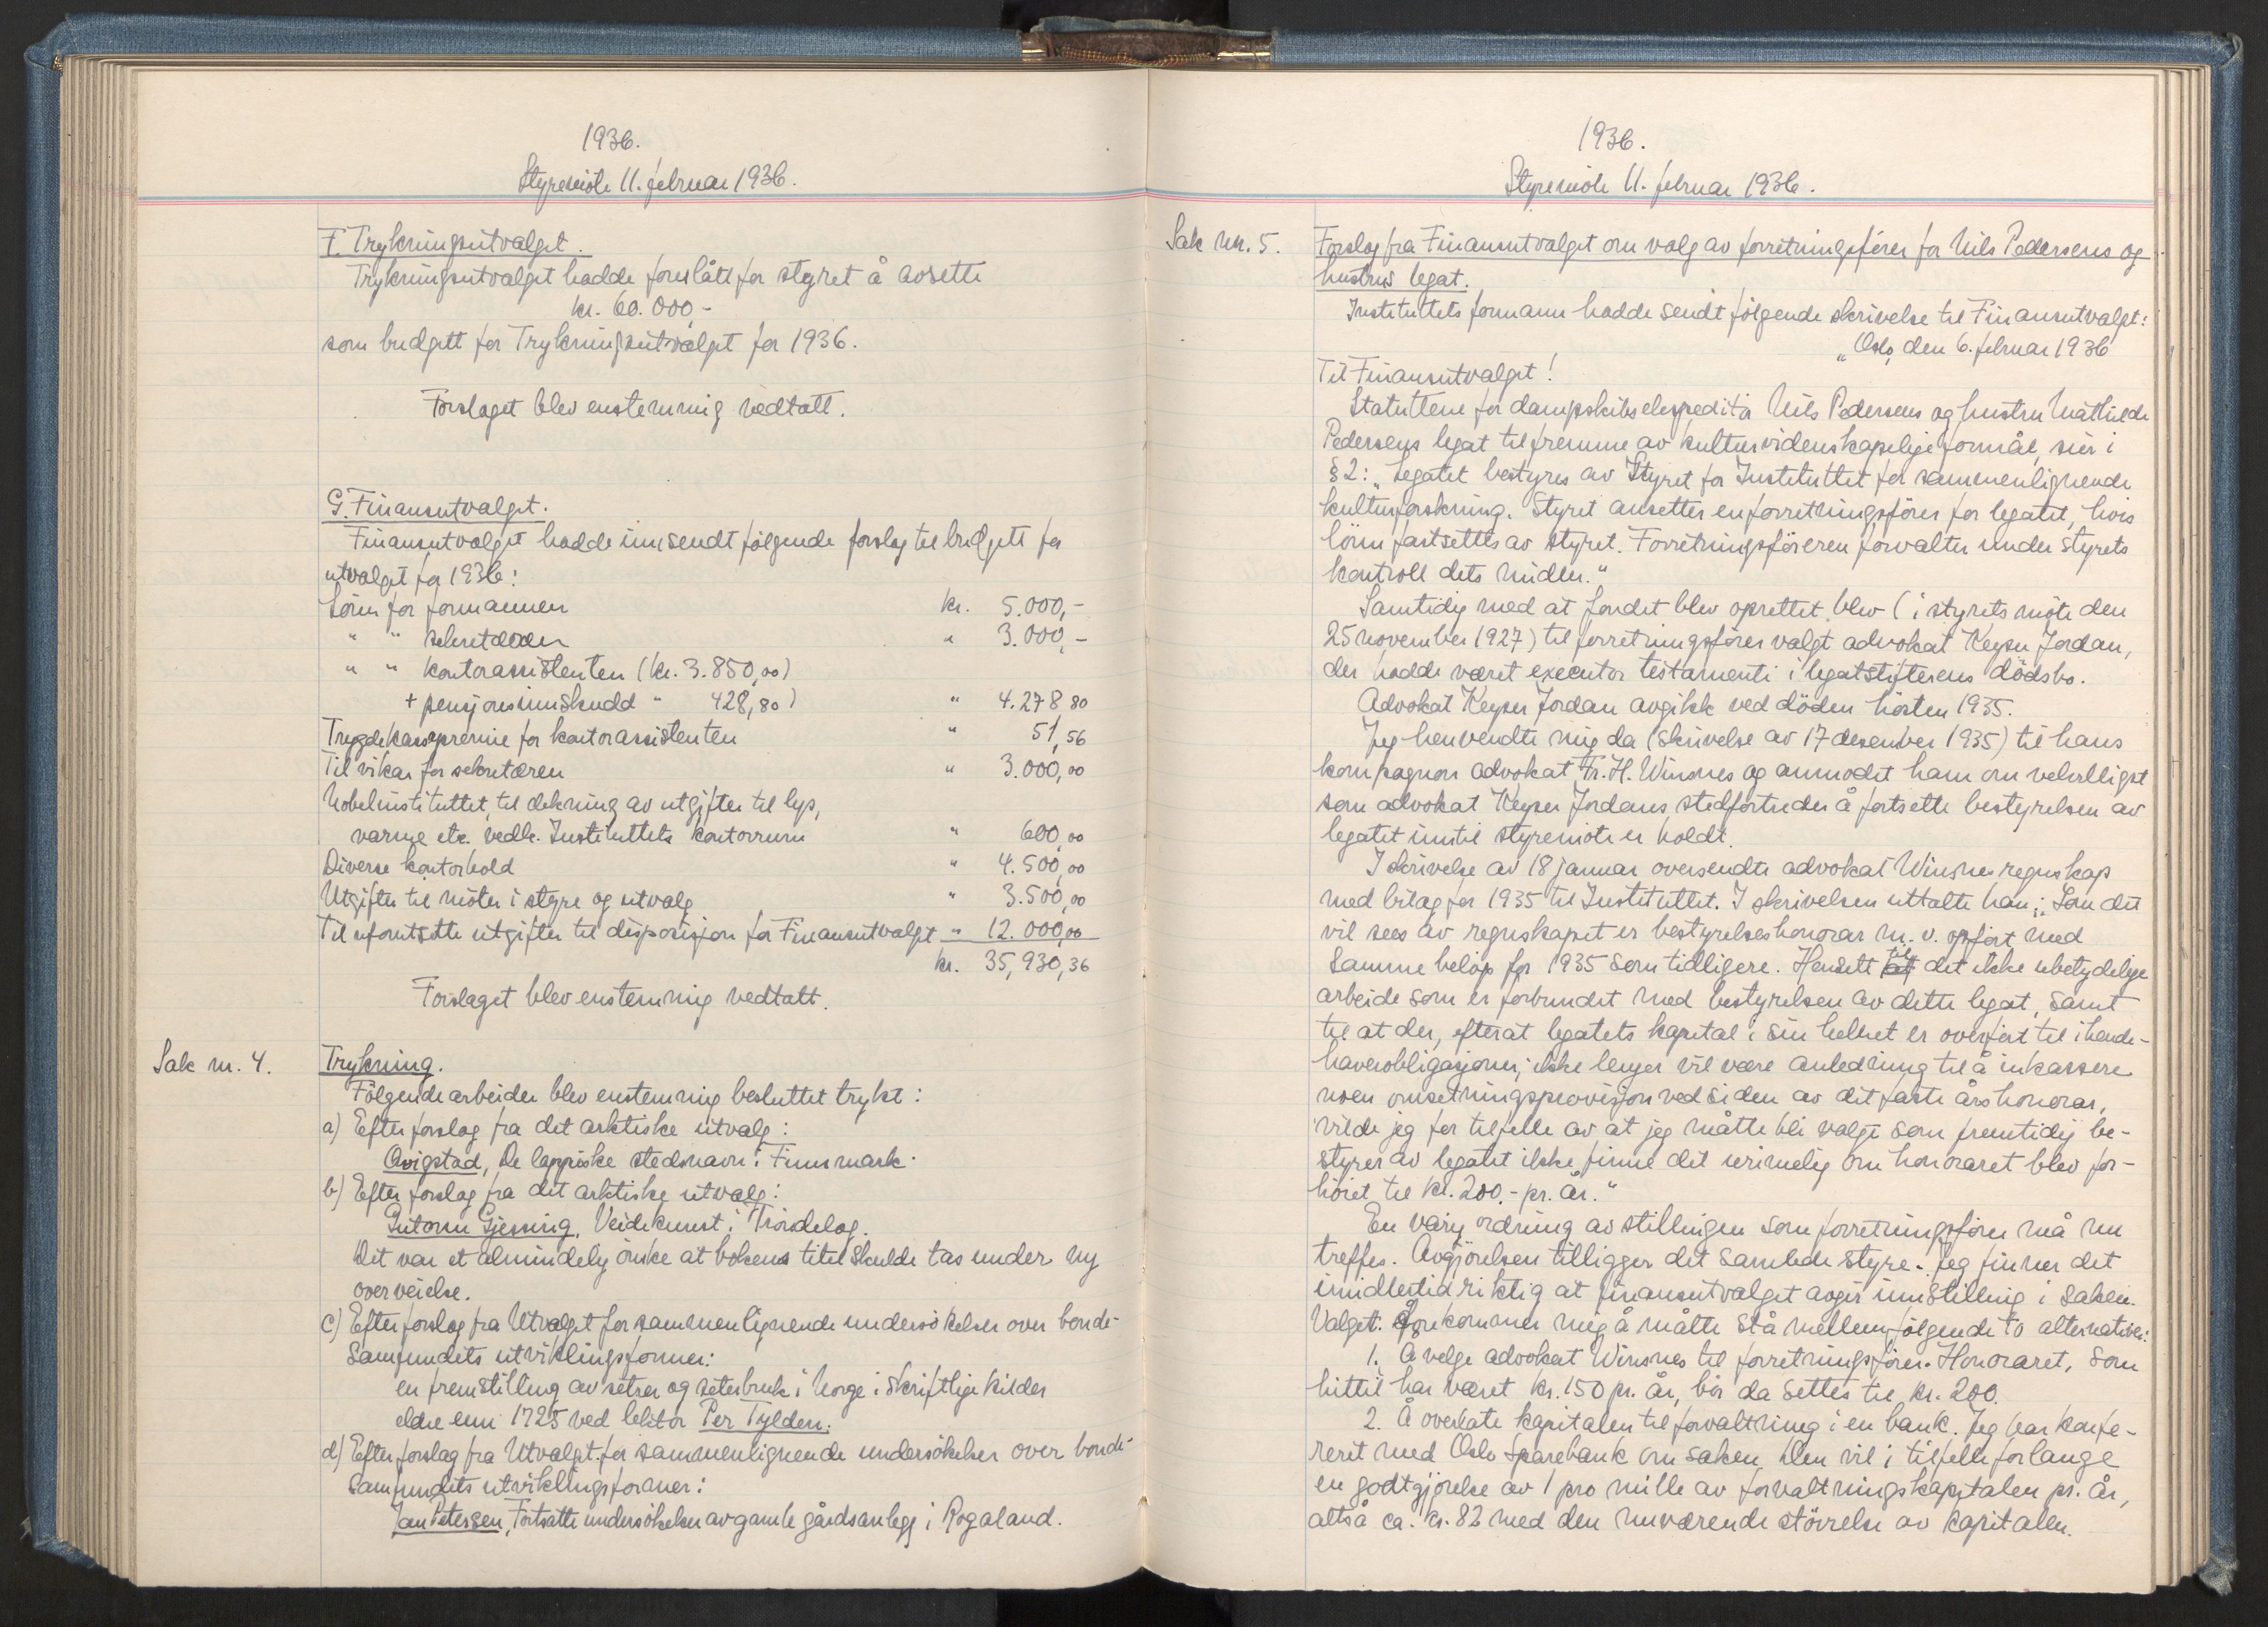 1936.
Styremöte 11. februar 1936.
F. Trykningsutvalget.
Trykningsutvalget hadde foreslått for styret å avsette
kr. 60.000,-
som budgett for Trykningsutvalget for 1936.
Forslaget blev enstemmig vedtatt.
G. Finansutvalget.
Finansutvalget hadde innsendt følgende forslag til budgett for
utvalget for 1936:
Lönn for formannen kr. 5.000,-
" " sekretæren " 3.000,-
" " kontorassistenten (kr. 3.850,00)
+ pensjonsinnskudd " 428,80) " 4.278 80
Trygdekassepremie for kontorassistenten " 51,56
Til vikar for sekretæren " 3.000,00
Nobelinstituttet, til dekning av utgifter til lys,
varme etc. vedk. Instituttets kontorrum " 600,00
Diverse kontorhold " 4.500,00
Utgifter til möter i styre og utvalg " 3.500,00
Til uforutsette utgifter til disposisjon for Finansutvalget " 12.000,00
kr. 35,930,36
Forslaget blev enstemmig vedtatt.
Sak nr. 4. Trykning.
Fölgende arbeider blev enstemmig besluttet trykt:
a) Efter forslag fra det arktiske utvalg:
Qvigstad, De lappiske stedsnavn i Finnmark.
b) Efter forslag fra det arktiske utvalg:
Gutorm Gjessing, Veidekunst i Tröndelag.
Det var et almindelig önske at bokens titel skulde tas under ny
overveielse.
c) Efter forslag fra Utvalget for sammenlignende undersökelser over bonde-
samfundets utviklingsformer:
en fremstilling av setrer og seterbruk i Norge i skriftlige kilder
eldre enn 1725 ved lektor Per Tylden.
d) Efter forslag fra Utvalget for sammenlignende undersökelser over bonde-
samfundets utviklingsformer:
Jan Petersen, Fortsatte undersökelser av gamle gårdsanlegg i Rogaland.
1936.
Styremöte 11. februar 1936.
Sak nr. 5. Forslag fra Finansutvalget om valg av forretningsförer for Nils Pedersens og
hustrus legat.
Instituttets formann hadde sendt fölgende skrivelse til Finansutvalget:
„Oslo, den 6. februar 1936
Til Finansutvalget!
Statuttene for dampskibsekspeditör Nils Pedersens og hustru Mathilde
Pedersens legat til fremme av kulturvidenskapelige formål, sier i
§2: „Legatet bestyres av Styret for Instituttet for sammenlignende
kulturforskning. Styret ansetter en forretningsförer for legatet, hvis
lönn fastsettes av styret. Forretningsföreren forvalter under styrets
kontroll dets midler."
Samtidig med at fondet blev oprettet, blev (i styrets möte den
25 november 1927) til forretningsförer valgt advokat Keyser Jordan,
der hadde været executor testamenti i legatstifterens dödsbo.
Advokat Keyser Jordan avgikk ved döden hösten 1935.
Jeg henvendte mig da (skrivelse av 17 desember 1935) til hans
kompagnon advokat Fr. H. Winsnes og anmodet ham om velvilligst
som advokat Keyser Jordans stedfortreder å fortsette bestyrelsen av
legatet inntil styremöte er holdt.
I skrivelse av 18 januar oversendte advokat Winsnes regnskap
med bilag for 1935 til Instituttet. I skrivelsen uttalte han: „Som det
vil sees av regnskapet er bestyrelseshonorar m.v. opfört med
samme belöp for 1935 som tidligere. Hensett til det ikke ubetydelige
arbeide som er forbundet med bestyrelsen av dette legat, samt
til at der, efterat legatets kapital i sin helhet er overfört til ihende-
haverobligasjoner, ikke lenger vil være anledning til å inkassere
noen omsetningsprovisjon ved siden av det faste årshonorar,
vilde jeg for tilfelle av at jeg måtte bli valgt som fremtidig be-
styrer av legatet ikke finne det urimelig om honoraret blev for-
höiet til kr. 200.- pr. år."
En varig ordning av stillingen som forretningsförer må nu
treffes. Avgjörelsen tilligger det samlede styre. Jeg finner det
imidlertid riktig at finansutvalget avgir innstilling i saken.
Valget forekommer mig å måtte stå mellem fölgende to alternativer:
1. Å velge advokat Winsnes til forretningsförer. Honoraret, som
hittil har været kr. 150 pr. år, bör da settes til kr. 200.
2. Å overlate kapitalen til forvaltning i en bank. Jeg har konfe-
rert med Oslo Sparebank om saken. Den vil i tilfelle forlange
en godtgjörelse av 1 pro mille av forvaltningskapitalen pr. år,
altså ca. kr. 82 med den nuværende störrelse av kapitalen.